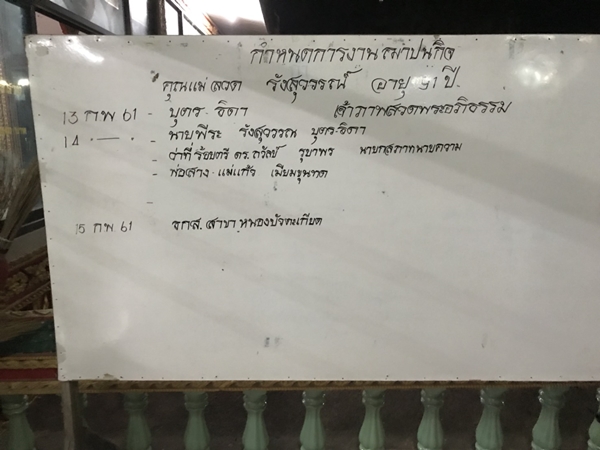 กำหนดการงานฌาปนกิจ
คุณแม่ ลวด รังสุวรรณ์ อายุ 91 ปี
13 กพ 61 - บุตร-ธิดา เจ้าภาพสวดพระอภิธรรม
14 " — " - นายพีระ รังสุวรรณ บุตร-ธิดา
- ว่าที่ร้อยตรี ดร.ถวัลย์ รุยาพร นายกสภาทนายความ
- พ่อสาง-แม่แก้ว เมียมขุนทด
-
15 กพ 61 ธกส. สาขา หนองบัว